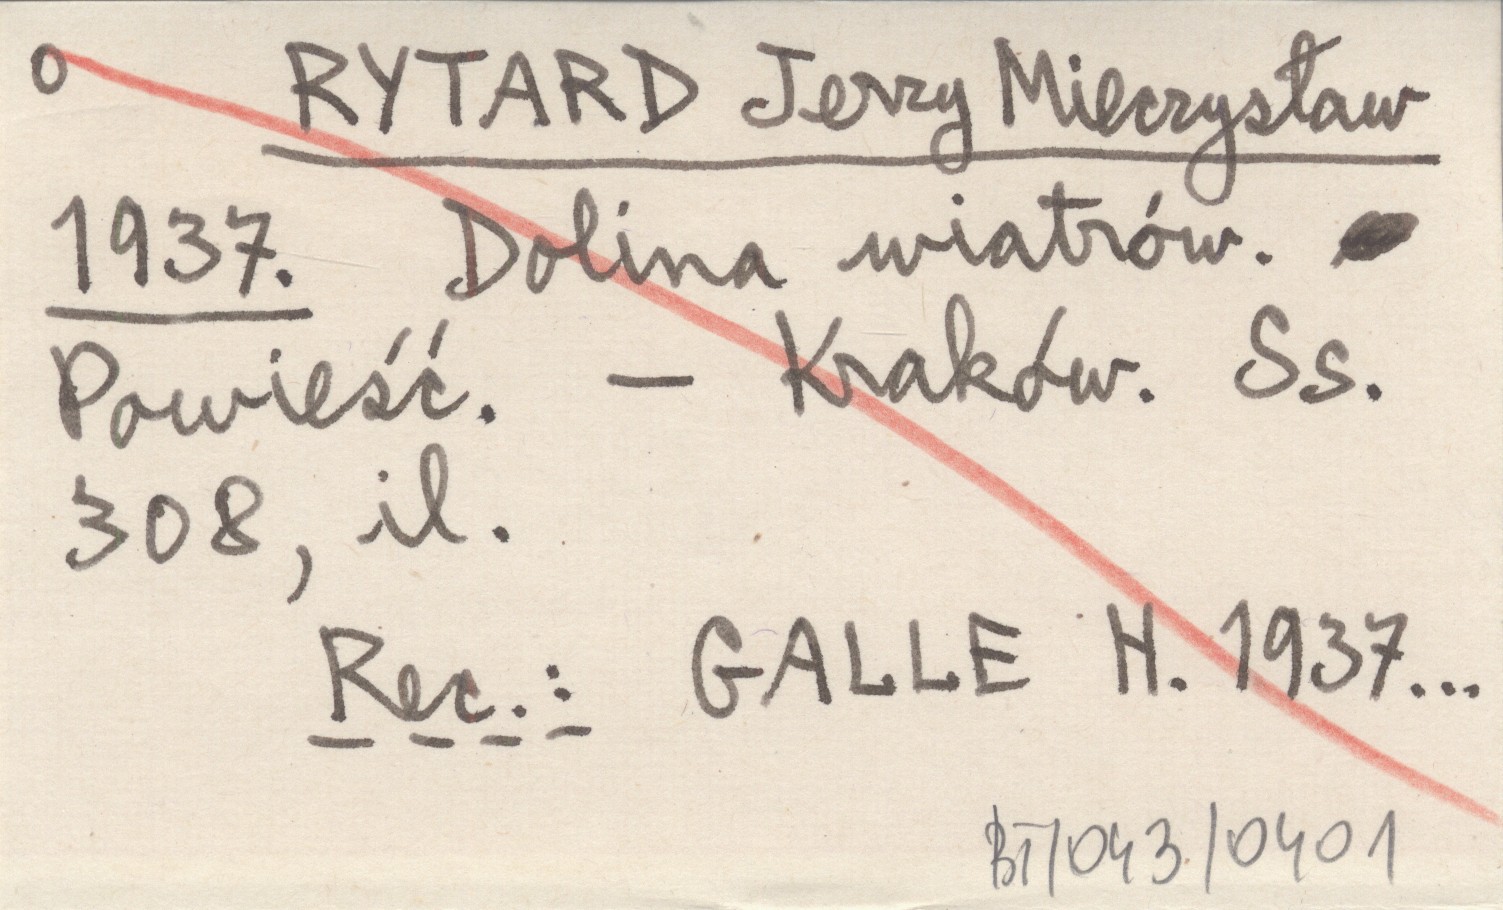 o RYTARD Jerzy Mieczysław
1937. Dolina wiatrów.
Powieść. — Kraków. Ss.
308, il.
Rec.: GALLE H. 1937...
BT/043/0401